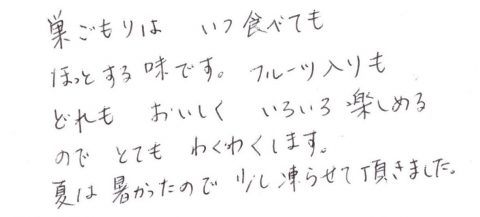 巣ごもりは いつ食べても
ほっとする味です。フルーツ入りも
どれも おいしく いろいろ楽しめる
ので とても わくわくします。
夏は暑かったので 少し凍らせて頂きました。